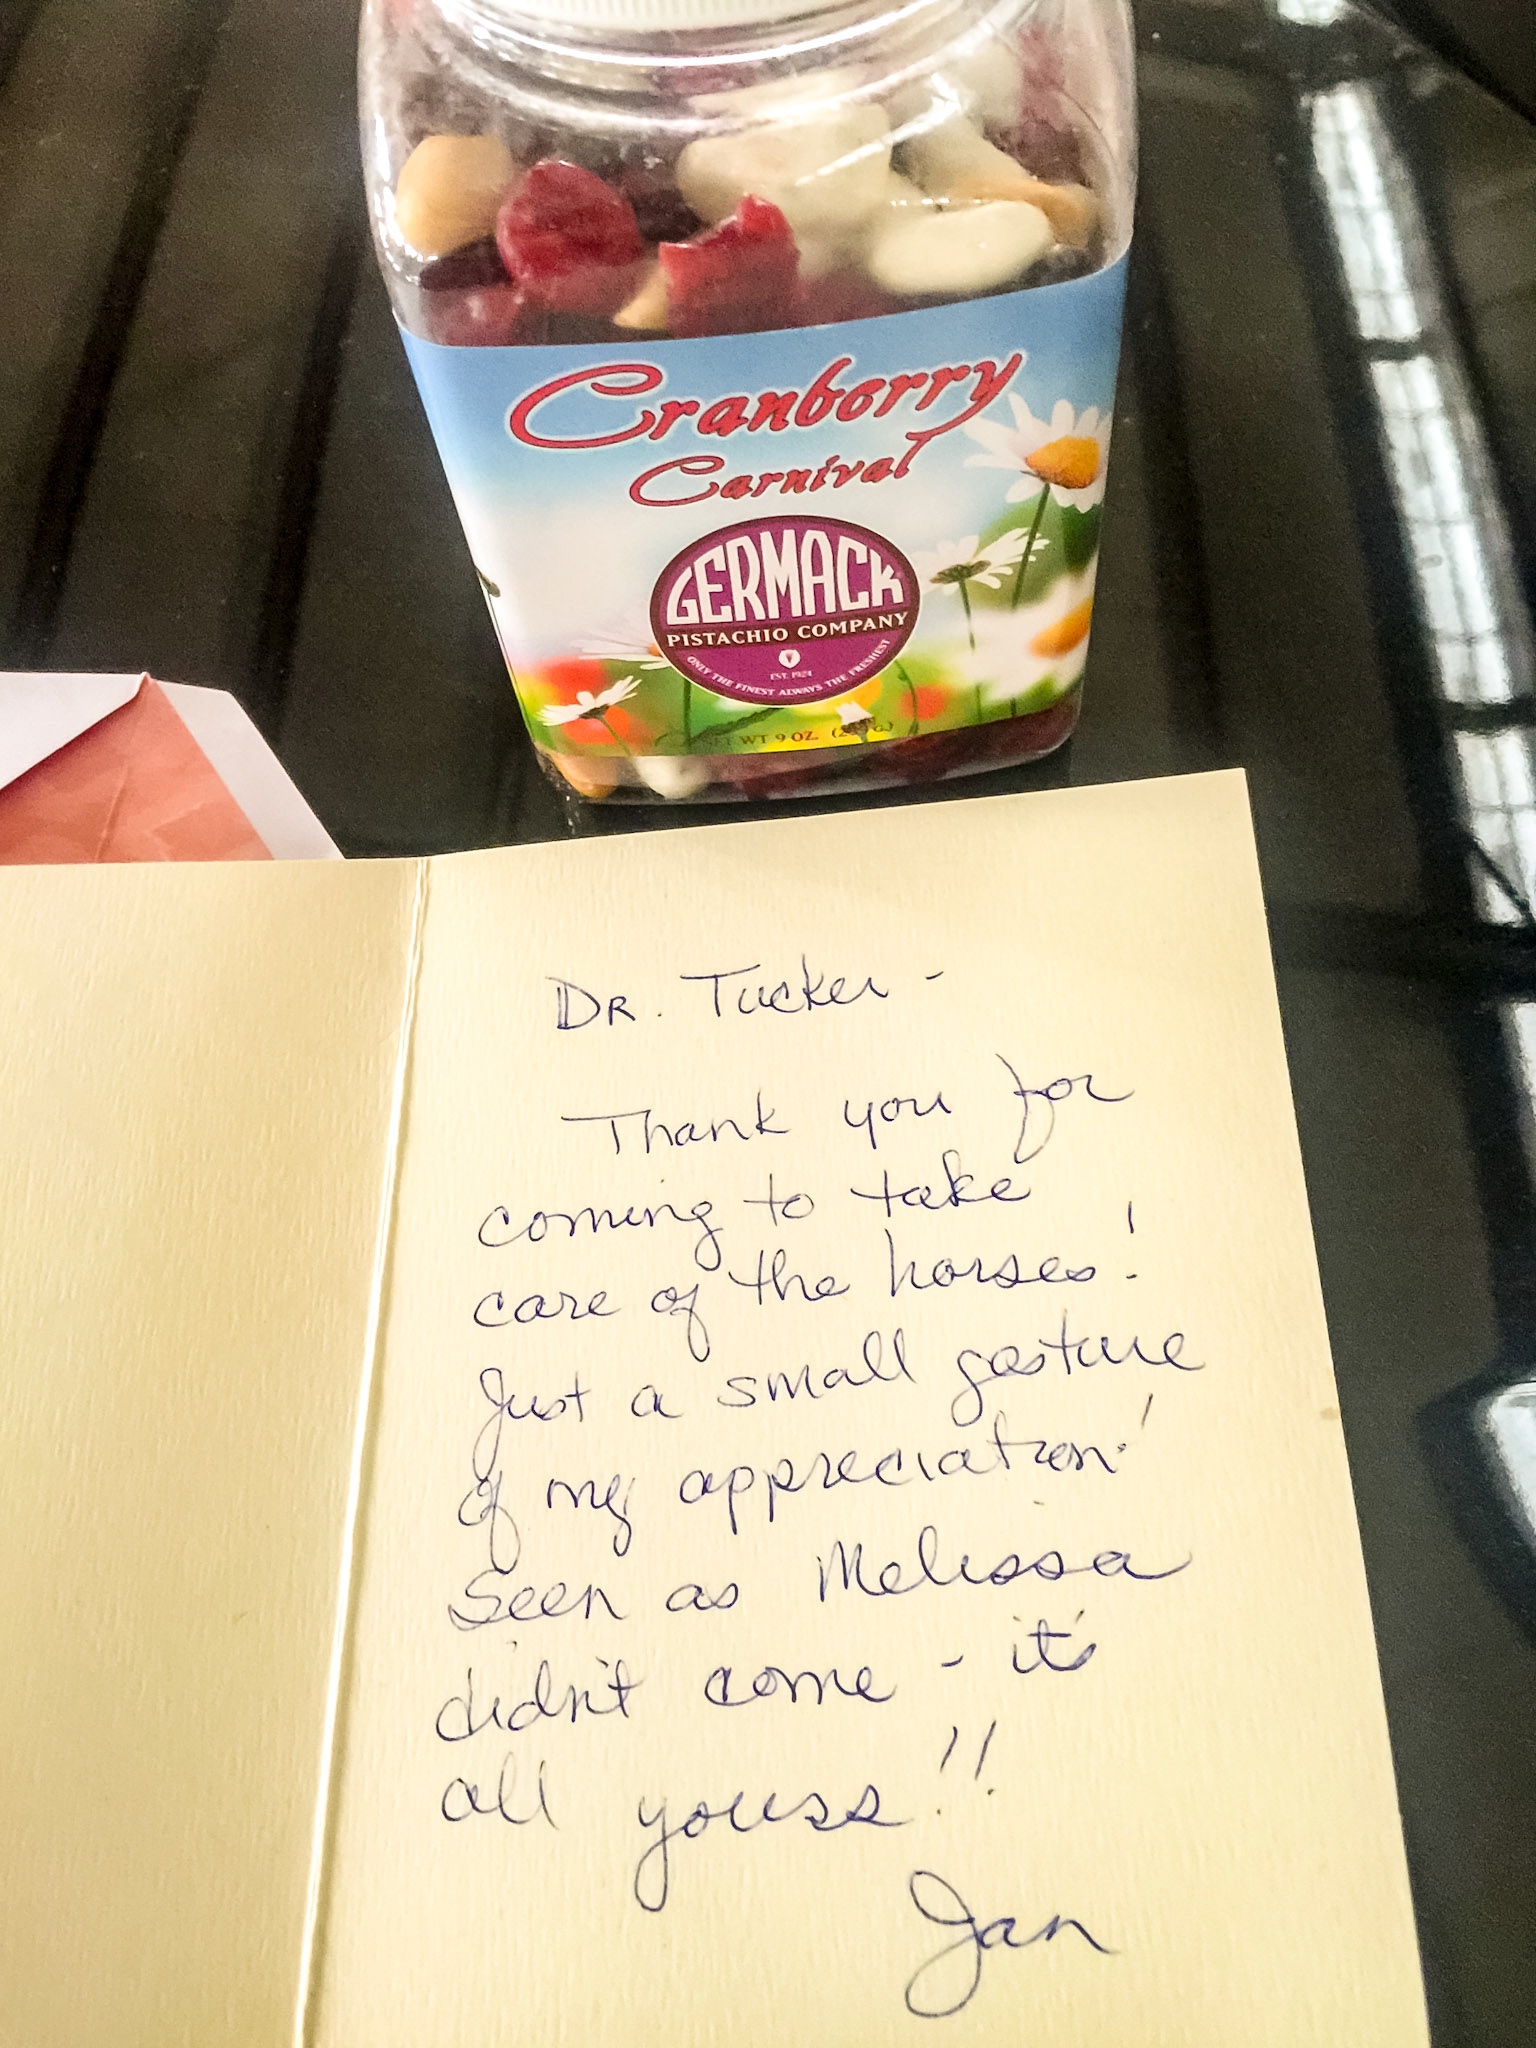 Cranberry
Carnival
GERMACK
PISTACHIO COMPANY
EST. 1924
ONLY THE FINEST ALWAYS THE FRESHEST
NET WT 9 OZ.
DR. Tucker -
Thank you for
coming to take
care of the horses!
Just a small gesture
of my appreciation!
Seen as Melissa
didn't come - it's
all yourss!!
Jan